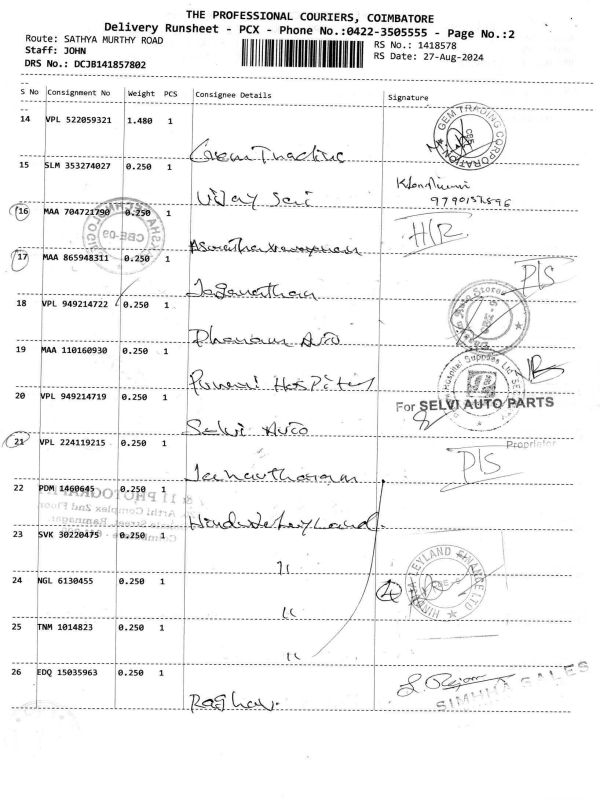 THE PROFESSIONAL COURIERS, COIMBATORE
Delivery Runsheet - PCX - Phone No.:0422-3505555 - Page No.:2
Route: SATHYA MURTHY ROAD
RS No.: 1418578
Staff: JOHN
RS Date: 27-Aug-2024
DRS No.: DCJB141857802
S No Consignment No Weight PCS Consignee Details Signature
14 VPL 522059321 1.480 1
GEM TRADING CORPORATION CBE
15 SLM 353274027 0.250 1
Vijay Sai
16 MAA 704721790 0.250 1
H/R
17 MAA 865948311 0.250 1
Jaganathan
P/S
18 VPL 949214722 0.250 1
Dhanam Auto
19 MAA 110160930 0.250 1
20 VPL 949214719 0.250 1
For SELVI AUTO PARTS
Selvi Auto
Proprietor
21 VPL 224119215 0.250 1
P/S
22 PDM 1460645 0.250 1
Hinduja Leyland.
23 SVK 30220475 0.250 1
11
HINDUJA LEYLAND FINANCE LTD
24 NGL 6130455 0.250 1
4
11
25 TNM 1014823 0.250 1
11
26 EDQ 15035963 0.250 1
SIMHHA SALES
Raghav.